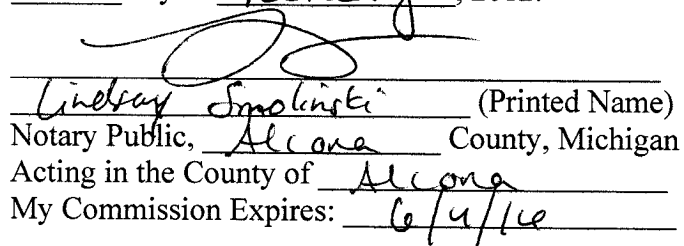 , 2012.
Lindsay Smolinski (Printed Name)
Notary Public, Alcona County, Michigan
Acting in the County of Alcona
My Commission Expires: 6/4/16